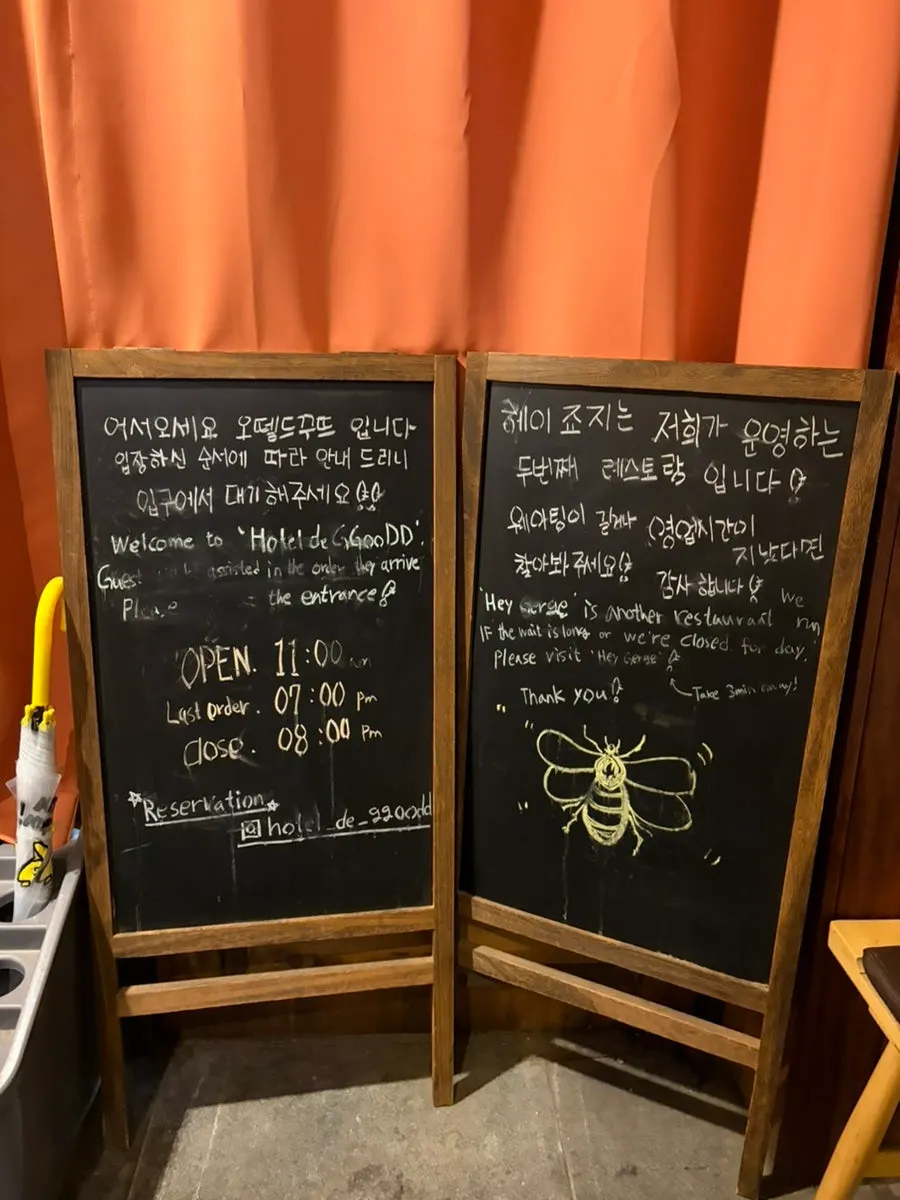 어서오세요 오뗄드꾸뜨 입니다
입장하신 순서에 따라 안내 드리니
입구에서 대기해주세요
Welcome to 'Hotel de GGooDD'.
Guest assisted in the order they arrive
the entrance
OPEN. 11:00
Last order. 07:00 pm
Close. 08:00 Pm
Reservation
hotel_de_ggoodd
헤이 죠지는 저희가 운영하는
두번째 레스토랑 입니다
웨이팅이 길거나 영업시간이
지났다면
찾아봐주세요 감사합니다
'Hey Gerge' is another restaurant We run
IF the wait is long or we're closed for day,
Please visit 'Hey Gerge'
Take 3min away!
Thank you